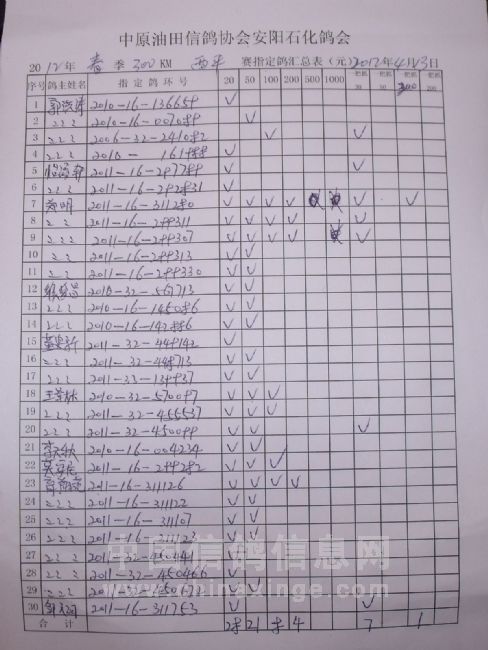 中原油田信鸽协会安阳石化鸽会
2012年 春 季 300 KM 西平 赛指定鸽汇总表（元）2012年4月13日
序号 鸽主姓名 指定鸽环号 20 50 100 200 500 1000 一把抓 30 一把抓 50 一把抓 一把抓 200
1 2010-16-136659 √
2 2010-16-007089 √
3 2006-32-241082 √ √
4 2010- 161488 √
5 2011-16-297789 √ √
6 2011-16-292831 √
7 郑明 2011-16-311280 √ √ √ √ √ √
8 2011-16-299311 √ √ √ √ √
9 2011-16-299307 √ √ √ √ √
10 2011-16-299313 √ √
11 2011-16-299330 √ √
12 2010-32-567713 √ √
13 2010-16-145086 √ √
14 2010-16-142886 √ √
15 2011-32-449142 √
16 2011-32-448713 √ √
17 2011-33-134937 √ √
18 2010-32-570097 √ √ √
19 2011-32-455537 √ √ √
20 2011-32-450099 √ √
21 2010-16-004234 √ √
22 2011-16-299282 √ √ √
23 2011-16-311126 √ √ √ √
24 2011-16-311122 √ √
25 2011-16-311107 √ √
26 2011-16-311123 √ √
27 2011-32-450441 √
28 2011-32-450466 √
29 2011-32-450672 √
30 2011-16-311753 √ √
合计 28 21 8 4 7 1
中国信鸽信息网
www.chinaxinge.com